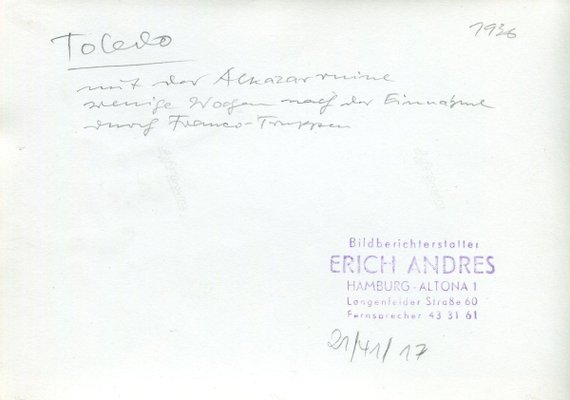 1936
Toledo
mit der Alkazarruine
wenige Wochen nach der Einnahme
durch Franco-Truppen
Bildberichterstatter
ERICH ANDRES
HAMBURG-ALTONA 1
Langenfelder Straße 60
Fernsprecher 43 31 61
21/41/17